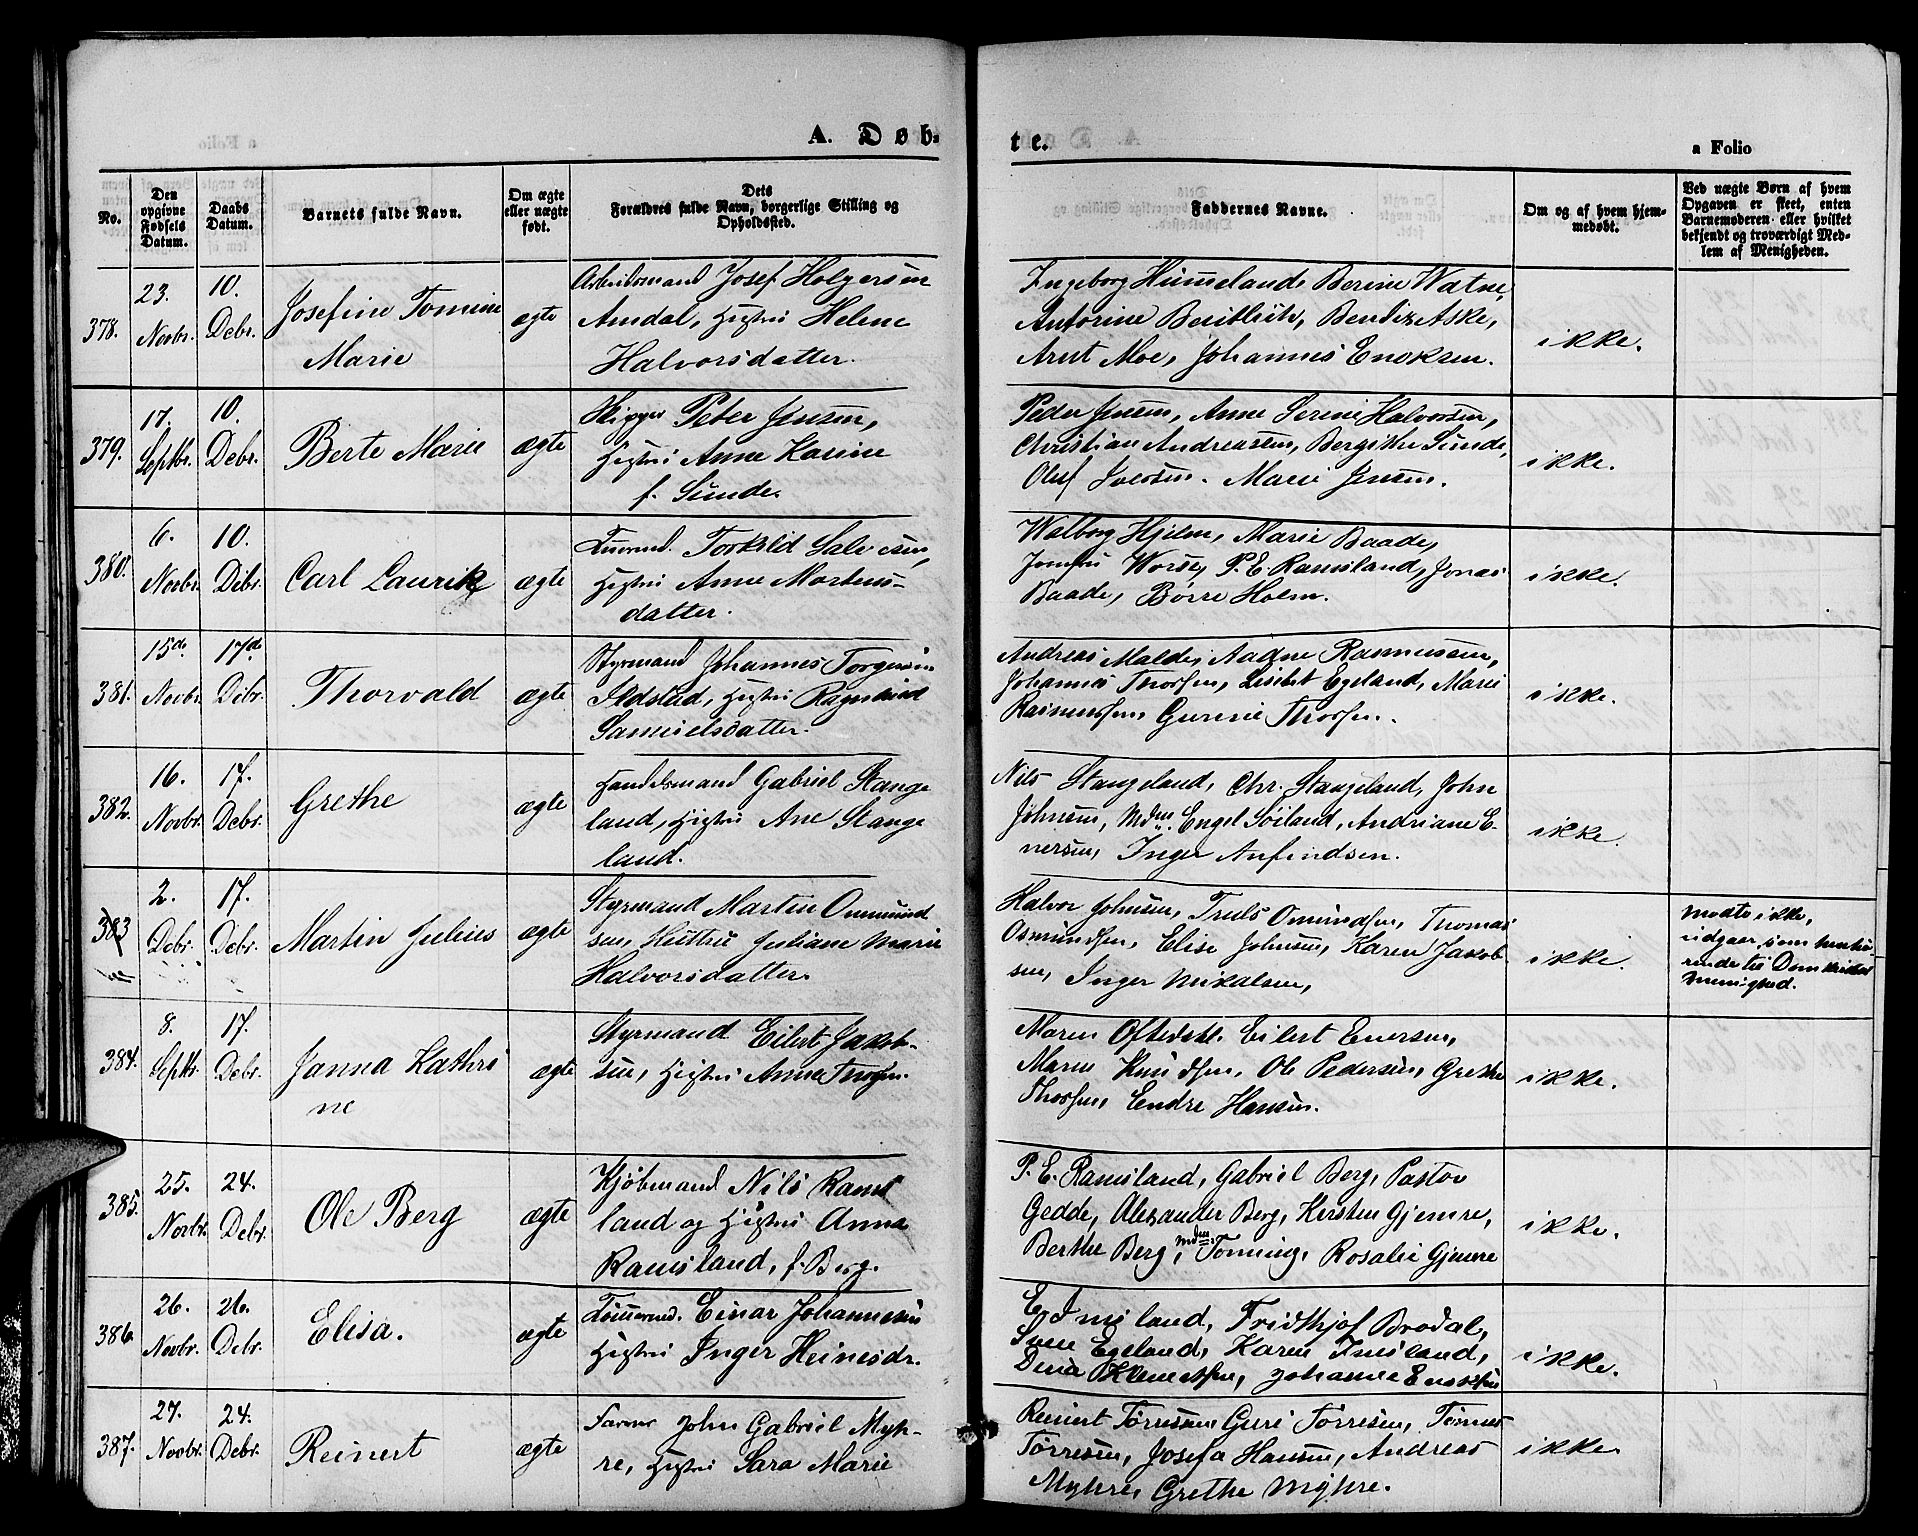 A. Døb=
te.
a Folio
No.
Den opgivne Fødsels Datum.
Daabs Datum.
Barnets fulde Navn.
Om ægte eller uægte født.
Dets Forældres fulde Navn, borgerlige Stilling og Opholdssted.
Faddernes Navne.
Om og af hvem hjem-
medøbt.
Ved uægte Børn af hvem
Opgaven er skeet, enten
Barnemoderen eller hvilket
bekjendt og troværdigt Med-
lem af Menigheden.
378.
23.
Novbr.
10.
Debr.
Josefine Tomine
Marie
ægte
Arbeidsmand Josef Holgersen
Amdal, Hustru Helene
Halvorsdatter.
Ingeborg Hummeland, Berine Watne,
Antorine, Bendix Aske,
Arnt Moe, Johannes Enoksen.
ikke.
379.
17.
Septbr.
10.
Debr.
Berte Marie
ægte
Skipper Peter Jensen,
Hustru Anne Karine
f. Sunde.
Peder Jensen, Anne Serine Halvorsen,
Christian Andreassen, Bergithe Sunde,
Oluf Iversen. Marie Jensen.
ikke.
380.
6.
Novbr.
10.
Debr.
Carl Laurik
ægte
Tømmermd. Torkild Salvesen,
Hustru Anne Mortens-
datter.
Walborg Hjelm, Marie Baade,
Jomfru Worse, P. E. Ramsland, Jonas
Baade, Børre Holm.
ikke.
381.
15de
Novbr.
17de
Debr.
Thorvald
ægte
Styrmand Johannes Torgersen
Ildstad, Hustru Ragnhild
Samuelsdatter.
Andreas Malde, Aadne Rasmussen,
Johannes Thorsen, Lisebet Egeland, Marie
Rasmussen, Gurine Thorsen.
ikke.
382.
16.
Novbr.
17.
Debr.
Grethe
ægte
Handelsmand Gabriel Stange
land, Hustru Ane Stange
land.
Nils Stangeland, Chr. Stangeland, John
Johnsen, Mdm. Engel Soiland, Andriane E-
nersen, Inger Anfindsen.
ikke.
383
2.
Debr.
17.
Debr.
Martin Julius
ægte
Styrmand Martin Ommund
sen, Hustru Juliane Marie
Halvorsdatter.
Halvor Johnsen, Truls Omundsen, Thomas
Osmundsen, Elise Johnsen, Karen Jakob-
sen, Inger Mikalsen,
ikke.
Mødte ikke,
udgaar som henhø-
rende til Domkirkens
Menighed.
384.
8.
Septbr.
17.
Debr.
Janna Kathri
ne
ægte
Styrmand Eilert Jakob-
sen, Hustru Anna
Maren Oftedahl, Eilert Enersen,
Maren Knudsen, Ole Pedersen, Grethe
Thorsen, Endre Hansen.
ikke.
385.
25.
Novbr.
24.
Debr.
Ole Berg
ægte
Kjøbmand Nils Rams
land og Hustru Anna
Ramsland, f. Berg.
P. E. Ramsland, Gabriel Berg, Pastor
Gedde, Alexander Berg, Kersten Gjemre,
Berthe Berg, Mdm. Tønning, Rosalie Gjemre
ikke.
386.
26.
Novbr.
26.
Debr.
Elisa.
ægte
Tømmermd. Einar Johannesen
Hustru Inger Heinesdr.
E. Imsland, Fridthjof Brodal,
Sven Egeland, Karen Imsland,
Dina Klemetsen, Johanne Enoksen
ikke.
387.
27.
Novbr.
24.
Debr.
Reinert
ægte
Farver John Gabriel Myh-
re, Hustru Sara Marie
Reinert Tørresen, Guri Tørresen, Tønnes
Tørresen, Josefa Hansen, Andreas
Myhre, Grethe Myhre.
ikke.